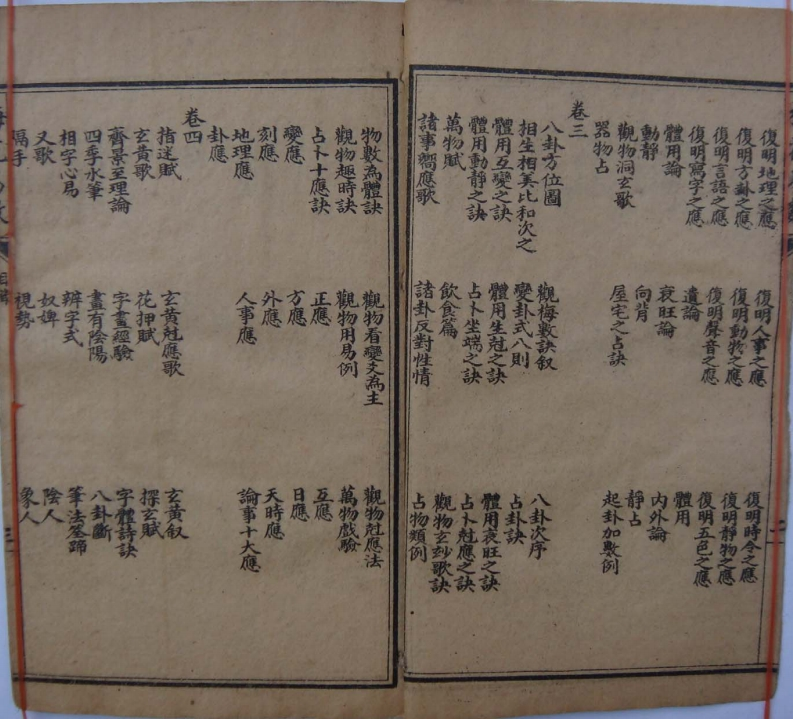 復明地理之應 復明人事之應 復明時令之應
復明方卦之應 復明動物之應 復明靜物之應
復明言語之應 復明聲音之應 復明五色之應
復明寫字之應 遺論 體用
體用論 衰旺論 內外論
動靜 向背 靜占
觀物洞玄歌 屋宅之占訣 起卦加數例
器物占
卷三
八卦方位圖 觀梅數訣叙 八卦次序
相生相尅比和次之 變卦式八則 占卦訣
體用互變之訣 體用生尅之訣 體用衰旺之訣
體用動靜之訣 占卜坐端之訣 占卜尅應之訣
萬物賦 飲食篇 觀物玄玅歌訣
諸事嚮應歌 諸卦反對性情 占物類例
物數為體訣 觀物看變爻為主 觀物尅應法
觀物趣時訣 觀物用易例 萬物戲驗
占卜十應訣 正應 互應
變應 方應 日應
刻應 外應 天時應
地理應 人事應 論事十大應
卦應
卷四
指迷賦 玄黄尅應歌 玄黄叙
玄黄歌 花押賦 探玄賦
齊景至理論 字畫經驗 字體詩訣
四季水筆 畫有陰陽 八卦斷
相字心易 辨字式 筆法筌蹄
又歌 奴婢 陰人
隔手 視勢 象人